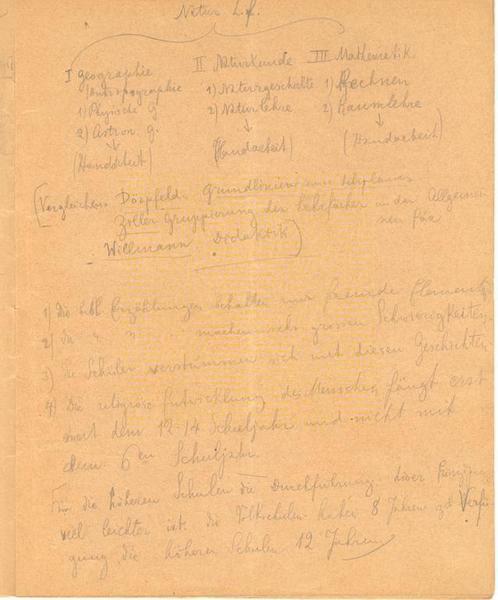 Natur
I Geographie II Naturkunde III Mathematik
Anthropogeographie 1) Naturgeschichte 1) Rechnen
1) Physische G 2) Naturlehre 2) Raumlehre
2) Astron. G.
(Handarbeit) (Handarbeit) (Handarbeit)
(Vergleichen Dörpfeld. Grundlinien Lehrplanes
Ziller Gruppierung der Lehrfächer in der Allgemei
nen Päd
Willmann Didaktik)
1) Die bibl. Erzählungen enthalten nur fremde Elemente
2) Die " " machen sehr grossen Schwierigkeiten
3) Die Schüler verstummen sich mit diesen Geschichten
4) Die religiöse Entwicklung des Menschen fängt erst
mit dem 12-14 Schuljahr und nicht mit
dem 6en Schuljahr.
Für die höheren Schulen die Durchführung dieser Prinzipien
viel leichter ist. die Volkschulen haben 8 Jahren zur Verfü
gung, die höheren Schulen 12 Jahren